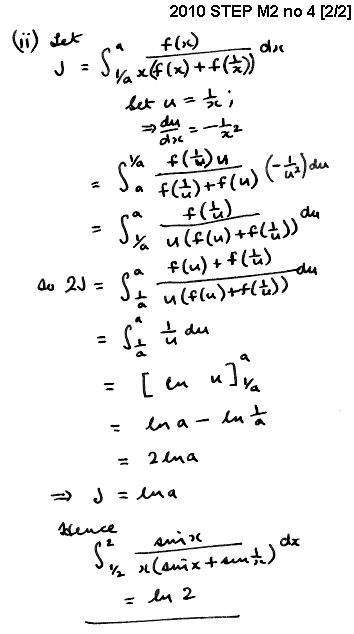 2010 STEP M2 no 4 [2/2]
(ii) Let
J = ∫_{1/a}^{a} f(x) / x(f(x) + f(1/x)) dx
Let u = 1/x ;
⇒ du/dx = -1/x²
= ∫_{a}^{1/a} f(1/u) u / f(1/u) + f(u) (-1/u²) du
= ∫_{1/a}^{a} f(1/u) / u(f(u) + f(1/u)) du
So 2J = ∫_{1/a}^{a} f(u) + f(1/u) / u(f(u) + f(1/u)) du
= ∫_{1/a}^{a} 1/u du
= [ ln u ]_{1/a}^{a}
= ln a - ln 1/a
= 2 ln a
⇒ J = ln a
Hence
∫_{1/2}^{2} sin x / x(sin x + sin 1/x) dx
= ln 2